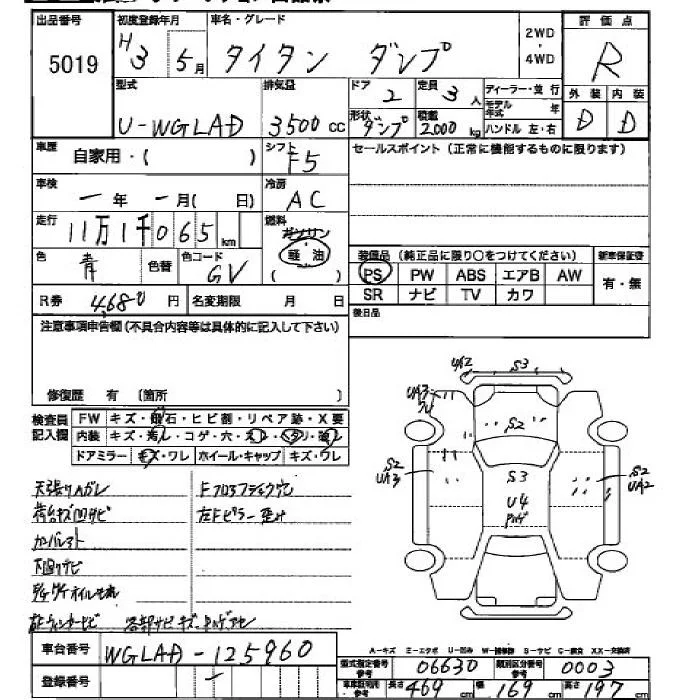 出品番号 初度登録年月 車名・グレード 2WD・4WD 評価点
5019 H3 5月 タイタン ダンプ R
型式 排気量 ドア 定員 ディーラー・並行 外装 内装
U-WGLAD 3500cc 2 3人 モデル年式 年 D D
形状 ダンプ 積載 2000kg ハンドル 左・右
車歴 自家用・( ) シフト F5 セールスポイント(正常に機能するものに限ります)
車検 一年 一月( 日) 冷房 AC
走行 11万1千065km 燃料 ガソリン 軽油 ( )
色 青 色替 色コード GV
装備品(純正品に限り○をつけてください) 新車保証書
PS PW ABS エアB AW 有・無
SR ナビ TV カワ
R券 4,680円 名変期限 月 日 後日品
注意事項申告欄(不具合内容等は具体的に記入して下さい)
修復歴 有 〔箇所 〕
検査員記入欄 FW キズ・飛石・ヒビ割・リペア跡・X要
内装 キズ・汚レ・コゲ・穴・スレ・ヘタリ・破レ
ドアミラー キズ・ワレ ホイール・キャップ キズ・ワレ
天張りハガレ
荷台キズ凹サビ 左Fピラー歪ミ
下回りサビ
UA2 S3
UA3
S2
S2 UA3 S3 S2 UA2
U4
A-キズ E-エクボ U-凹み W-補修跡 S-サビ C-腐食 XX-交換済
車台番号 WGLAD-125960
型式指定番号 参考 06630 類別区分番号 参考 0003
登録番号
車車証明用 参考 長さ 469cm 幅 169cm 高さ 197cm